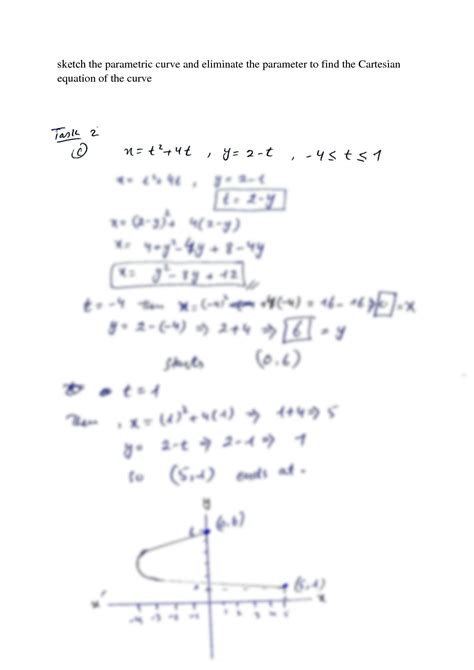 sketch the parametric curve and eliminate the parameter to find the Cartesian
equation of the curve
Task 2
c) x = t²+4t , y = 2-t , -4 ≤ t ≤ 1
x = t²+4t , y = 2-t
t = 2-y
x = (2-y)² + 4(2-y)
x = 4+y²-4y+8-4y
x = y²-8y+12
t = -4 Then x = (-4)² +4(-4) = 16-16 ⇒ 0 = x
y = 2-(-4) ⇒ 2+4 ⇒ 6 = y
starts (0,6)
t = 1
Then , x = (1)²+4(1) ⇒ 1+4 ⇒ 5
y = 2-t ⇒ 2-1 ⇒ 1
so (5,1) ends at.
y
6 (0,6)
(5,1)
x' x
-4 -3 -2 -1 1 2 3 4 5